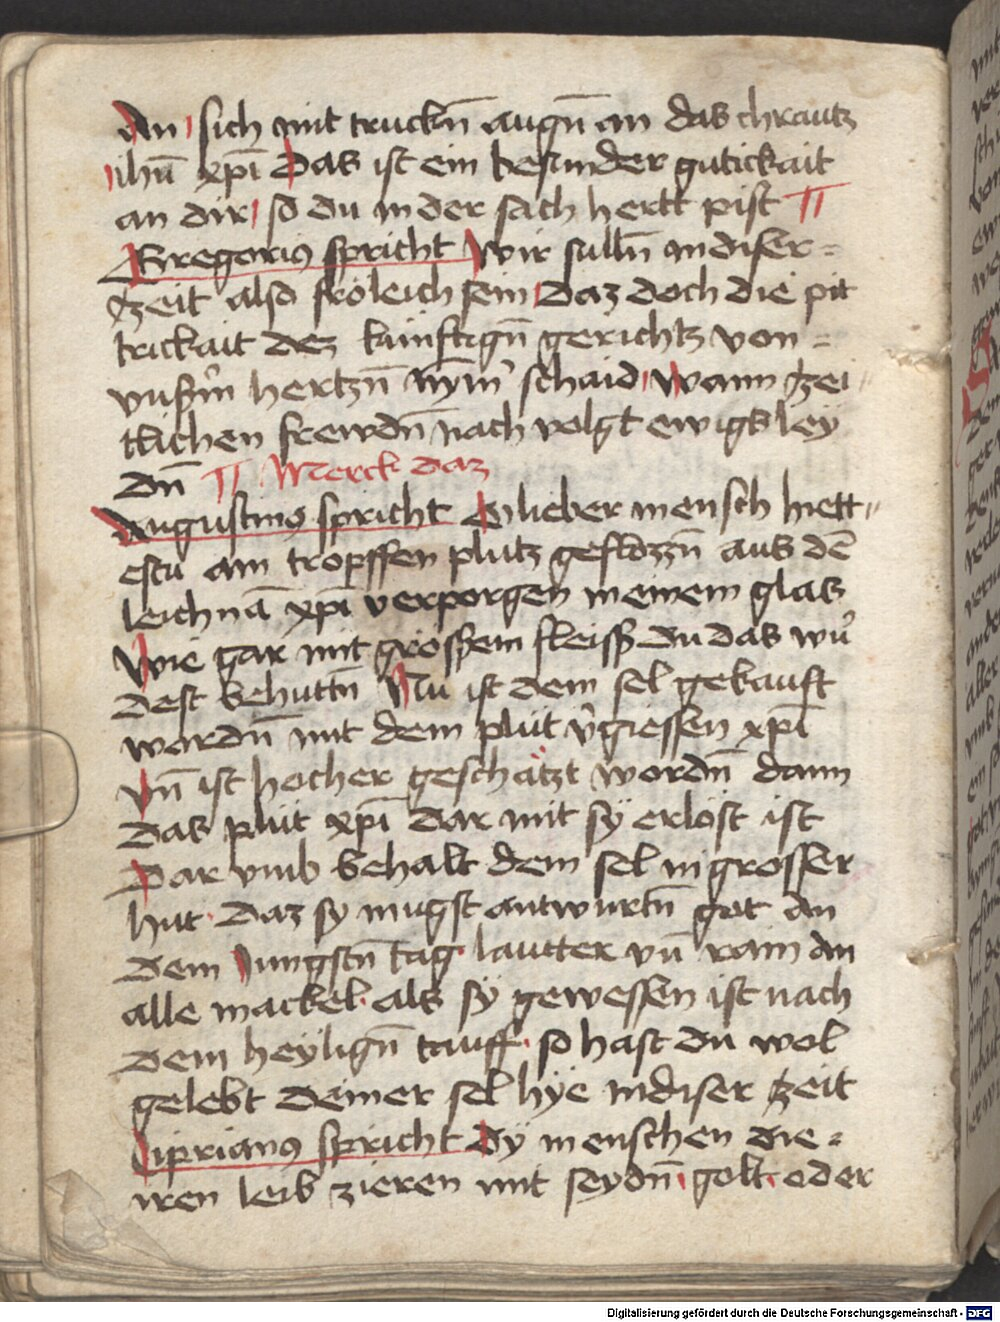 An sich mit truckn̄ augn̄ an das chrautz
ihū xp̄i Das ist ein besunder gutickait
an dir so du in der sach hertt pist
Gregorius spricht Wir sulln̄ in diser
zeit also frӧleich sein Daz doch die pit
trickait dez künftign̄ gerichtz von
hertzn̄ schaid Wann zei
tlichen frewdn̄ nach volgt ewigs ley
dn̄ Merck daz
Augustinus spricht O lieber mensch hiett
estu ain tropffen plutz geflozzn̄ aus dē
leichnā xp̄i verporgen in einem glas
Wie gar mit grossem fleiss du das wu᷑
dest behuttn̄ Nu ist dein sel gekauft
wordn̄ mit dem plüt v᷑giessen xp̄i
vn̄ ist hocher geschätzt wordn̄ dann
das plüt xp̄i dar mit sy erlöst ist
Dar vmb behalt dein sel in grosser
hut Daz sy mugst antwurtn̄ got An
dem Iungstn̄ tag lautter vn̄ rain an
alle mackel als sy gewessen ist nach
dem heylign̄ tauff so hast du wol
gelebt deiner sel hye in diser zeit
Ciprianus spricht Dy menschen die
iren leib zieren mit seydn̄ golt oder
Digitalisierung gefördert durch die Deutsche Forschungsgemeinschaft - DFG